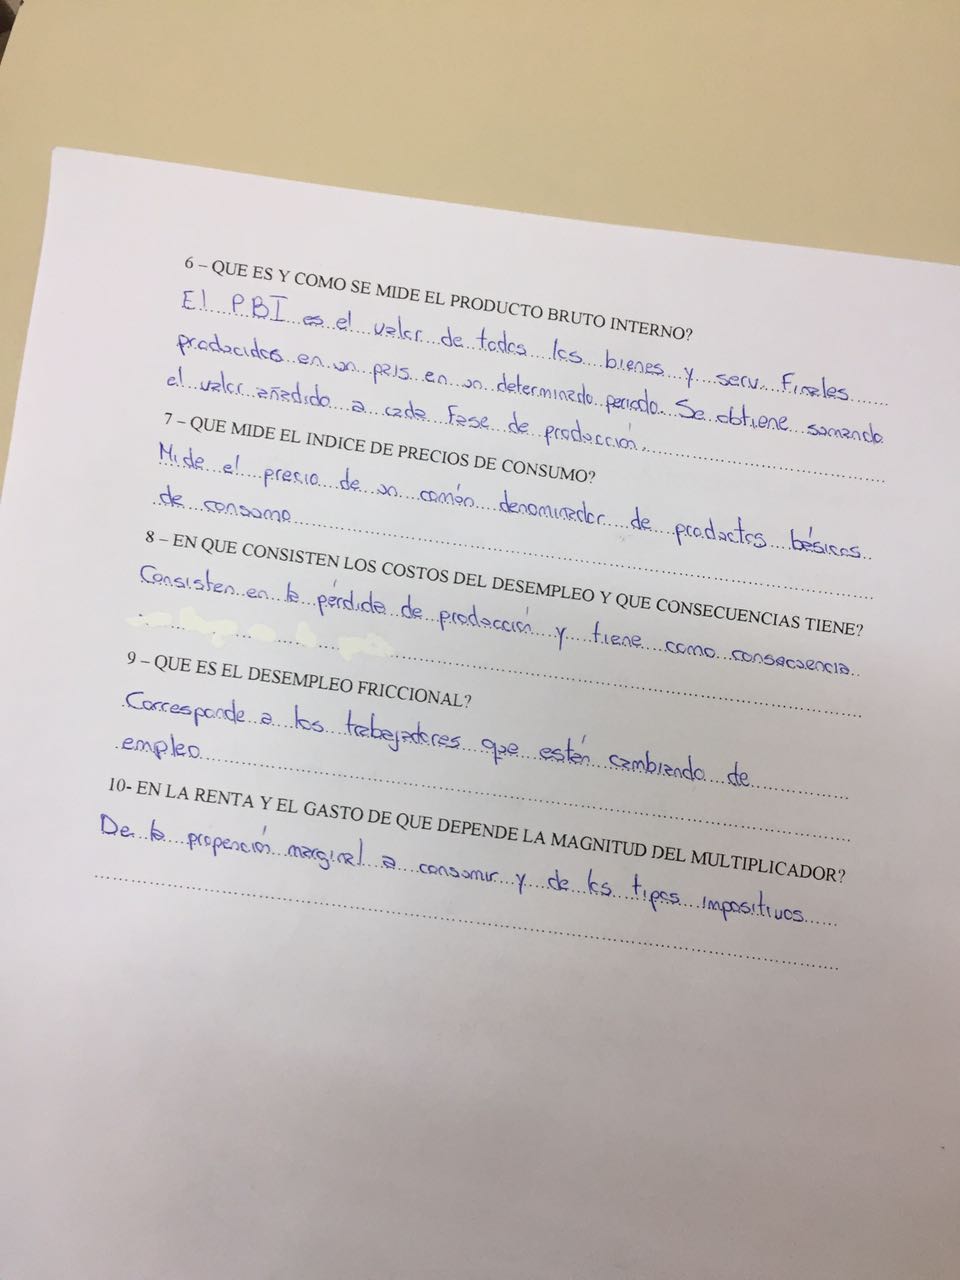 6 – QUE ES Y COMO SE MIDE EL PRODUCTO BRUTO INTERNO?
El PBI es el valor de todos los bienes y serv. Finales
producidos en un país en un determinado periodo. Se obtiene sumando
el valor añadido a cada Fase de producción.
7 – QUE MIDE EL INDICE DE PRECIOS DE CONSUMO?
Mide el precio de un común denominador de productos básicos
de consumo
8 – EN QUE CONSISTEN LOS COSTOS DEL DESEMPLEO Y QUE CONSECUENCIAS TIENE?
Consisten en la pérdida de producción y tiene como consecuencia
9 – QUE ES EL DESEMPLEO FRICCIONAL?
Corresponde a los trabajadores que están cambiando de
empleo
10- EN LA RENTA Y EL GASTO DE QUE DEPENDE LA MAGNITUD DEL MULTIPLICADOR?
De la propención marginal a consumir y de los tipos impositivos